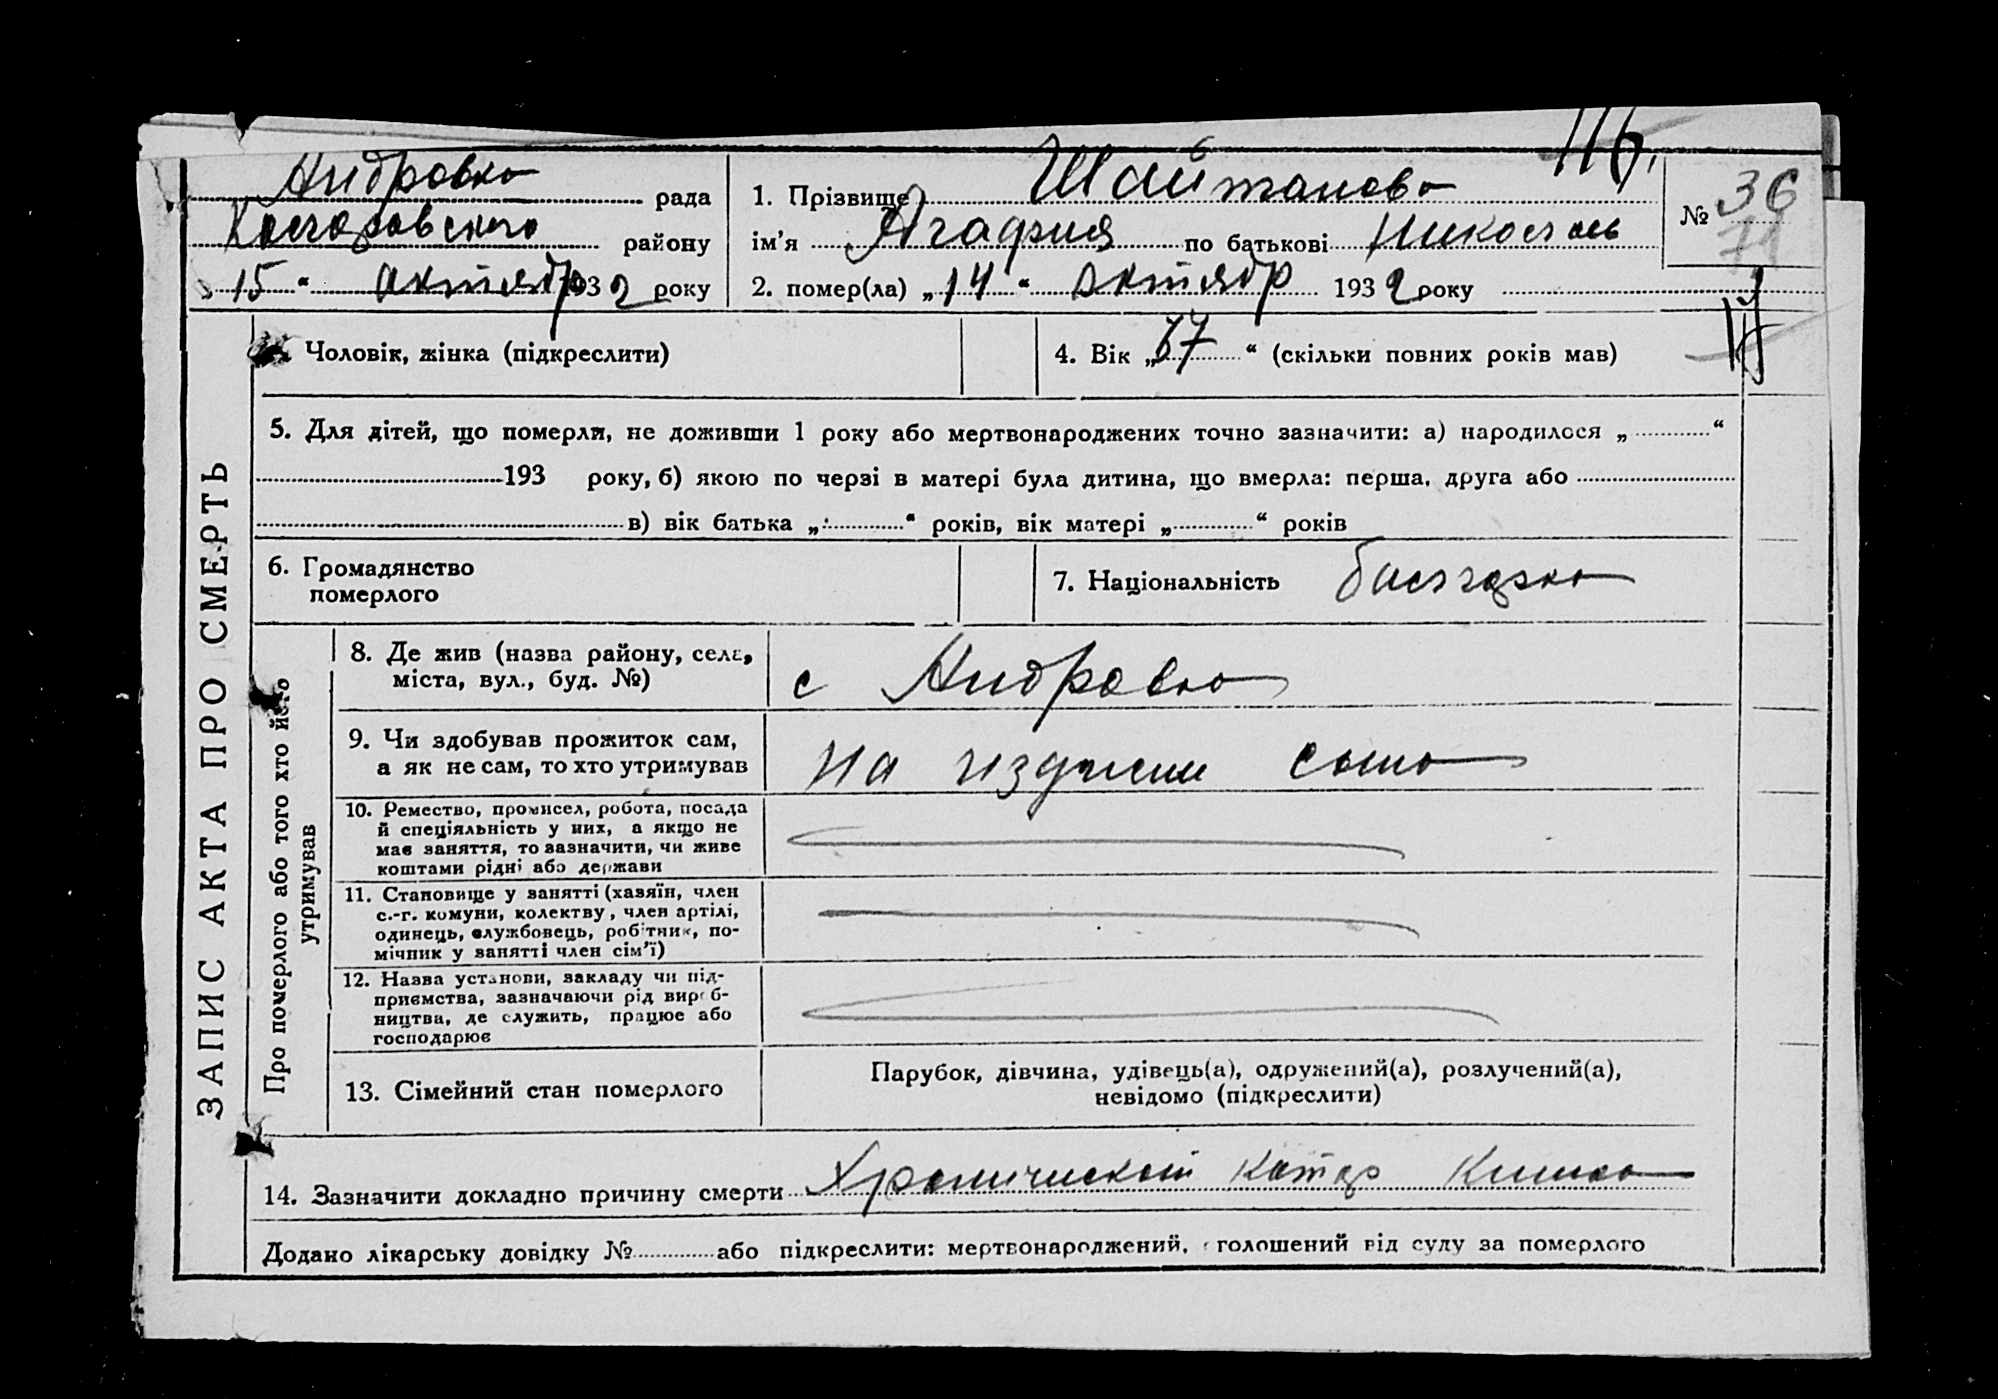 116
Андровка рада
району
„15“ октябр 1932 року
1. Прізвище Шайтанова
ім’я Агафия по батькові Николаев
2. помер(ла) „14“ октябр 1932 року
№ 36
71
Чоловік, жінка (підкреслити)
4. Вік „77“ (скільки повних років мав)
5. Для дітей, що померли, не доживши 1 року або мертвонароджених точно зазначити: а) народилося „ “
193 року, б) якою по черзі в матері була дитина, що вмерла: перша, друга або
в) вік батька „ “ років, вік матері „ “ років
6. Громадянство
померлого
7. Національність болгарка
ЗАПИС АКТА ПРО СМЕРТЬ
Про померлого або того хто його
утримував
8. Де жив (назва району, села,
міста, вул., буд. №)
с Андровка
9. Чи здобував прожиток сам,
а як не сам, то хто утримував
на изджении сына
10. Ремество, промисел, робота, посада
й спеціяльність у них, а якщо не
має заняття, то зазначити, чи живе
коштами рідні або держави
11. Становище у занятті (хазяїн, член
с.-г. комуни, колектву, член артілі,
одинець, службовець, робітник, по-
мічник у занятті член сім’ї)
12. Назва установи, закладу чи під-
приємства, зазначаючи рід вироб-
ництва, де служить, працює або
господарює
13. Сімейний стан померлого
Парубок, дівчина, удівець(а), одружений(а), розлучений(а),
невідомо (підкреслити)
14. Зазначити докладно причину смерти Хроничиский катар кишка
Додано лікарську довідку № або підкреслити: мертвонароджений, оголошений від суду за померлого